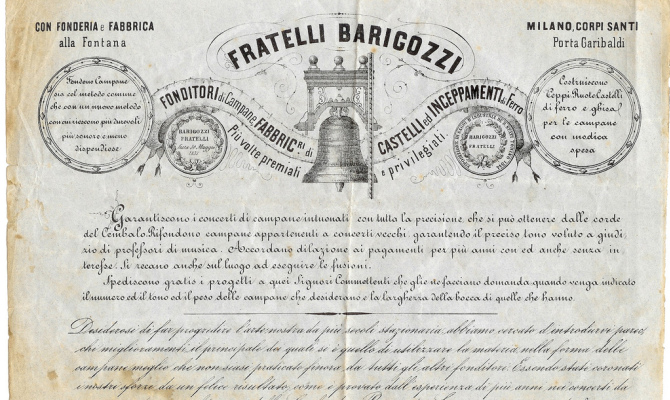 CON FONDERIA e FABBRICA
alla Fontana
FRATELLI BARIGOZZI
MILANO, CORPI SANTI
Porta Garibaldi
Fondono Campane
sia col metodo comune
che con un nuovo metodo
con cui riescono più durevoli
più sonore e meno
dispendiose
FONDITORI di Campane FABBRIC.RI di
Più volte premiati
CASTELLI ed INCEPPAMENTI in Ferro
e privilegiati.
BARIGOZZI
FRATELLI
BARIGOZZI
FRATELLI
Costruiscono
Ceppi, Ruote, Castelli
di ferro e ghisa
per le campane
con modica
spesa
Garantiscono i concerti di campane intuonati con tutta la precisione che si può ottenere dalle corde
del Cembalo. Rifondono campane appartenenti a concerti vecchi, garantendo il preciso tono voluto a giudi-
zio di professori di musica. Accordano dilazione ai pagamenti per più anni con ed anche senza in-
teresse. Si recano anche sul luogo ad eseguire le fusioni.
Spediscono gratis i progetti a quei Signori Committenti che glie ne facciano domanda, quando venga indicato
il numero ed il tono od il peso delle campane che desiderano e la larghezza della bocca di quelle che hanno.
Desiderosi di far progredire l'arte nostra da più secoli stazionaria, abbiamo cercato d'introdurre parec-
chi miglioramenti, il principale dei quali si è quello di utilizzare la materia nella forma delle
campane meglio che non siasi praticato finora da tutti gli altri fonditori. Essendo stati coronati
i nostri sforzi da un felice risultato, come è provato dall'esperienza di più anni, nei concerti da